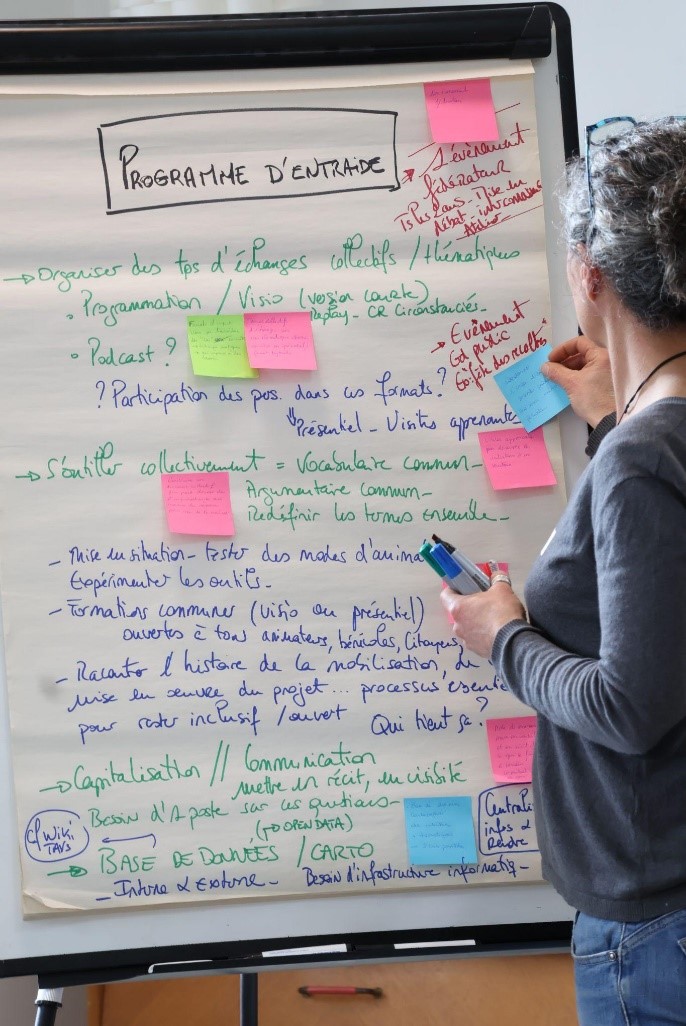 PROGRAMME D'ENTRAIDE
L'évènement
fédérateur
Ts les 2 ans - Mise en
débat - interconnaiss
Atelier
→ Organiser des tps d'échanges collectifs / thématiques
• Programmation / Visio (version courte)
Replay - CR Circonstanciés -
• Podcast ?
→ Evénement
Gd public
? Participation des pos. dans ces formats ?
Présentiel - Visites apprenantes
→ S'outiller collectivement = Vocabulaire commun -
Argumentaire commun -
Redéfinir les termes ensemble -
- Mise en situation - tester des modes d'anima
Expérimenter les outils -
- Formations communes (visio ou présentiel)
ouvertes à tous animateurs, bénévoles, citoyens,
- Raconter l'histoire de la mobilisation, de
mise en oeuvre du projet ... processus
pour rester inclusif / ouvert Qui tient ça ?
→ Capitalisation // Communication
mettre en récit, en visibilité
Besoin d'1 poste sur ces questions -
(TO OPEN DATA)
cf Wiki
TAVS
Centrali
infos &
Rendre
→ BASE DE DONNÉES / CARTO
- Interne & Externe - Besoin d'infrastructure informatiq -